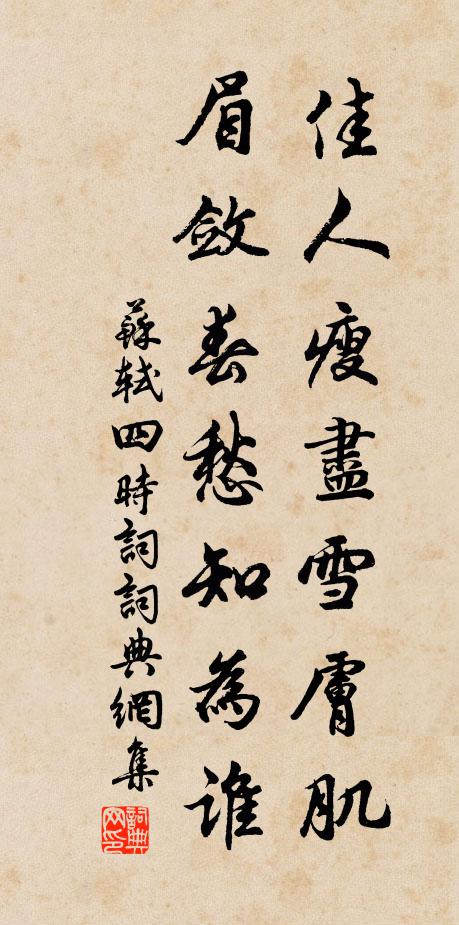 佳人瘦盡雪膚肌
眉斂春愁知為誰
蘇軾四時詞詞典網集
詞典
网印